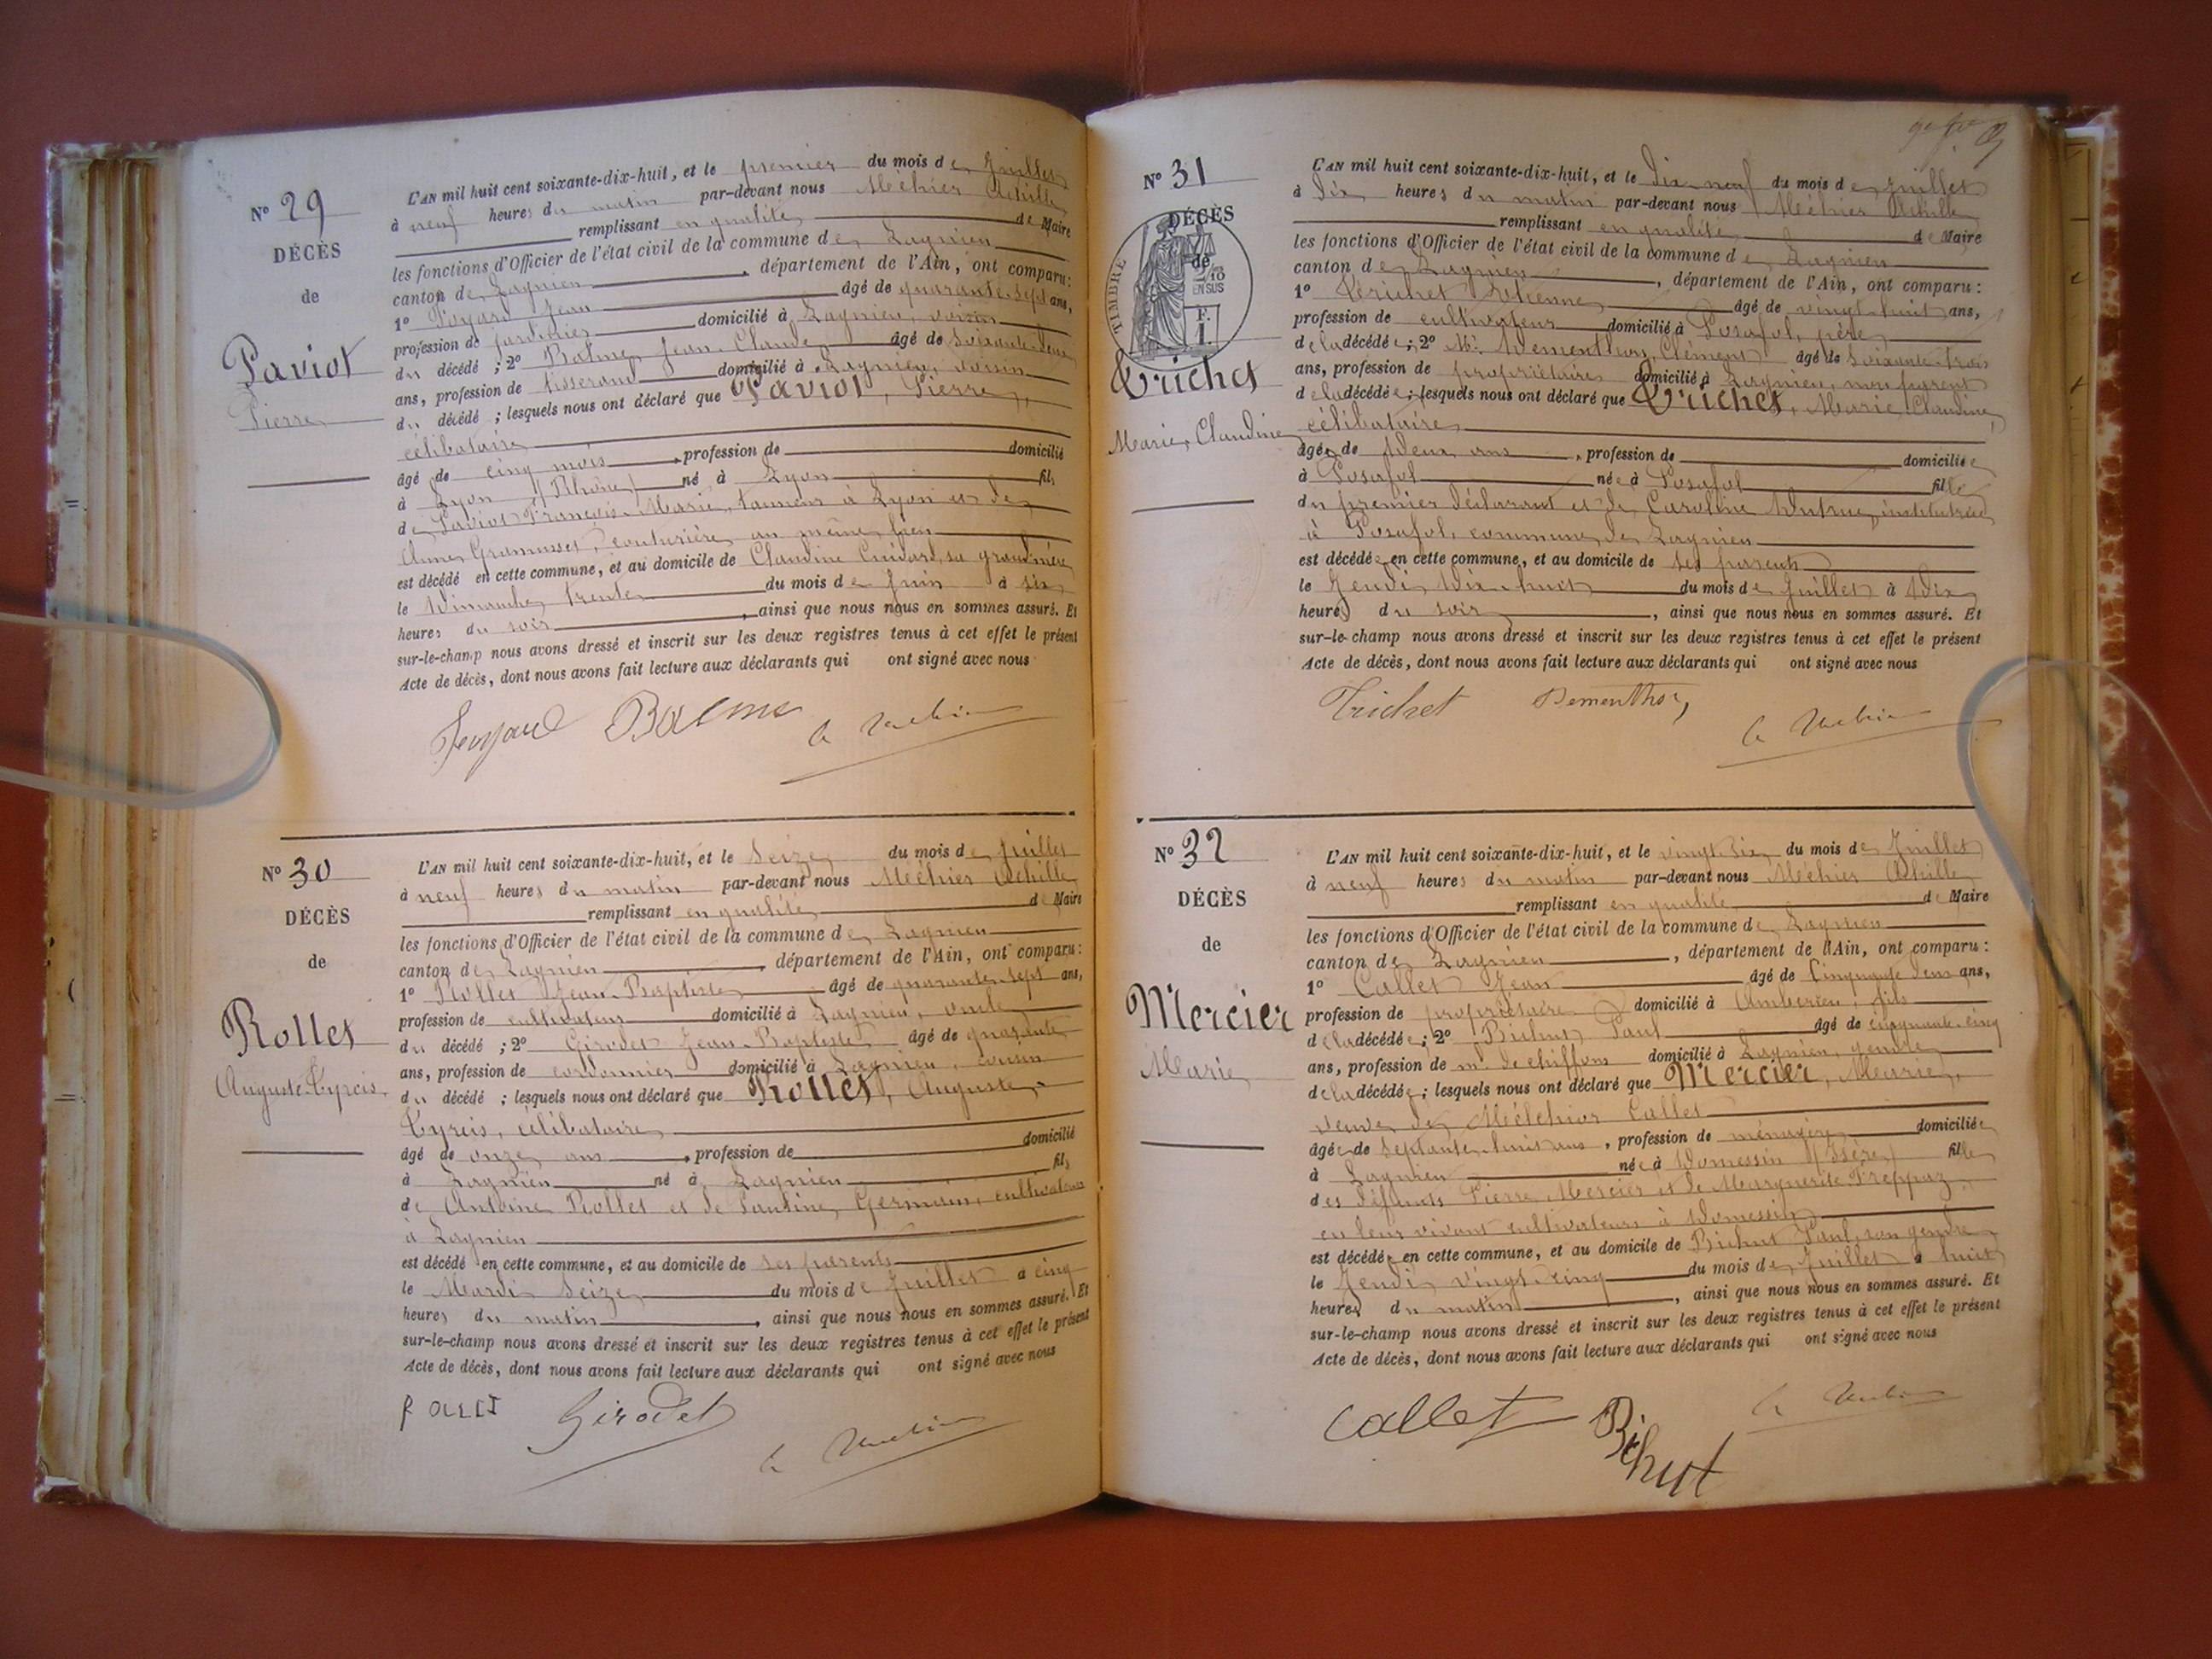 N° 29
DÉCÈS
de
Paviot
Pierre
L'AN mil huit cent soixante-dix-huit, et le premier du mois de Juillet
à neuf heures du matin par-devant nous Méhier Achille
remplissant en qualité de Maire
les fonctions d'Officier de l'état civil de la commune de Lagnieu
canton de Lagnieu, département de l'Ain, ont comparu:
1° Jean âgé de quarante-sept ans,
profession de jardinier domicilié à Lagnieu, voisin
du décédé ; 2° Balme Jean-Claude âgé de soixante-deux
ans, profession de tisserand domicilié à Lagnieu, voisin
du décédé ; lesquels nous ont déclaré que Paviot, Pierre,
célibataire
âgé de cinq mois, profession de domicilié
à Lyon (Rhône) né à Lyon fils
de Paviot François-Marie, tanneur à Lyon et de
Anne Gramusset, couturière au même lieu
est décédé en cette commune, et au domicile de Claudine sa grandmère
le Dimanche trente du mois de Juin à six
heures du soir, ainsi que nous nous en sommes assuré. Et
sur-le-champ nous avons dressé et inscrit sur les deux registres tenus à cet effet le présent
Acte de décès, dont nous avons fait lecture aux déclarants qui ont signé avec nous
Balme
N° 30
DÉCÈS
de
Rollet
Auguste-Tyrcis
L'AN mil huit cent soixante-dix-huit, et le seize du mois de Juillet
à neuf heures du matin par-devant nous Méhier Achille
remplissant en qualité de Maire
les fonctions d'Officier de l'état civil de la commune de Lagnieu
canton de Lagnieu, département de l'Ain, ont comparu:
1° Rollet Jean-Baptiste âgé de quarante-sept ans,
profession de cultivateur domicilié à Lagnieu, oncle
du décédé ; 2° Girodet Jean-Baptiste âgé de quarante
ans, profession de cordonnier domicilié à Lagnieu, cousin
du décédé ; lesquels nous ont déclaré que Rollet, Auguste-
Tyrcis, célibataire
âgé de onze ans, profession de domicilié
à Lagnieu né à Lagnieu fils
de Antoine Rollet et de Pantine Germain, cultivateurs
à Lagnieu
est décédé en cette commune, et au domicile de ses parents
le Mardi seize du mois de Juillet à cinq
heures du matin, ainsi que nous nous en sommes assuré. Et
sur-le-champ nous avons dressé et inscrit sur les deux registres tenus à cet effet le présent
Acte de décès, dont nous avons fait lecture aux déclarants qui ont signé avec nous
Girodet
N° 31
DÉCÈS
de
TIMBRE
F.
1.
Trichet
Marie, Claudine
L'AN mil huit cent soixante-dix-huit, et le dix-neuf du mois de Juillet
à dix heures du matin par-devant nous Méhier Achille
remplissant en qualité de Maire
les fonctions d'Officier de l'état civil de la commune de Lagnieu
canton de Lagnieu, département de l'Ain, ont comparu:
1° Trichet Etienne âgé de vingt-huit ans,
profession de cultivateur domicilié à Posafol, père
de la décédée ; 2° Mr. Dementhon, Clément âgé de soixante-trois
ans, profession de propriétaire domicilié à Lagnieu, non parent
de la décédée ; lesquels nous ont déclaré que Trichet, Marie Claudine,
célibataire
âgée de deux ans, profession de domiciliée
à Posafol née à Posafol fille
du premier déclarant et de Caroline Dutruc, institutrice
à Posafol, commune de Lagnieu
est décédée en cette commune, et au domicile de ses parents
le Jeudi dix-huit du mois de Juillet à dix
heures du soir, ainsi que nous nous en sommes assuré. Et
sur-le-champ nous avons dressé et inscrit sur les deux registres tenus à cet effet le présent
Acte de décès, dont nous avons fait lecture aux déclarants qui ont signé avec nous
Trichet Dementhon
N° 32
DÉCÈS
de
Mercier
Marie
L'AN mil huit cent soixante-dix-huit, et le vingt-six du mois de Juillet
à neuf heures du matin par-devant nous Méhier Achille
remplissant en qualité de Maire
les fonctions d'Officier de l'état civil de la commune de Lagnieu
canton de Lagnieu, département de l'Ain, ont comparu:
1° Callet Jean âgé de cinquante deux ans,
profession de propriétaire domicilié à Ambérieu, fils
de la décédée ; 2° Bichut Paul âgé de cinquante-cinq
ans, profession de md. de chiffons domicilié à Lagnieu, gendre
de la décédée ; lesquels nous ont déclaré que Mercier, Marie,
veuve de Melchior Callet
âgée de septante-huit ans, profession de ménagère domiciliée
à Lagnieu née à Domessin (Isère) fille
des défunts Pierre Mercier et de Marguerite Treppaz,
en leur vivant cultivateurs à Domessin
est décédée en cette commune, et au domicile de Bichut Paul, son gendre
le Jeudi vingt-cinq du mois de Juillet à huit
heures du matin, ainsi que nous nous en sommes assuré. Et
sur-le-champ nous avons dressé et inscrit sur les deux registres tenus à cet effet le présent
Acte de décès, dont nous avons fait lecture aux déclarants qui ont signé avec nous
Callet Bichut